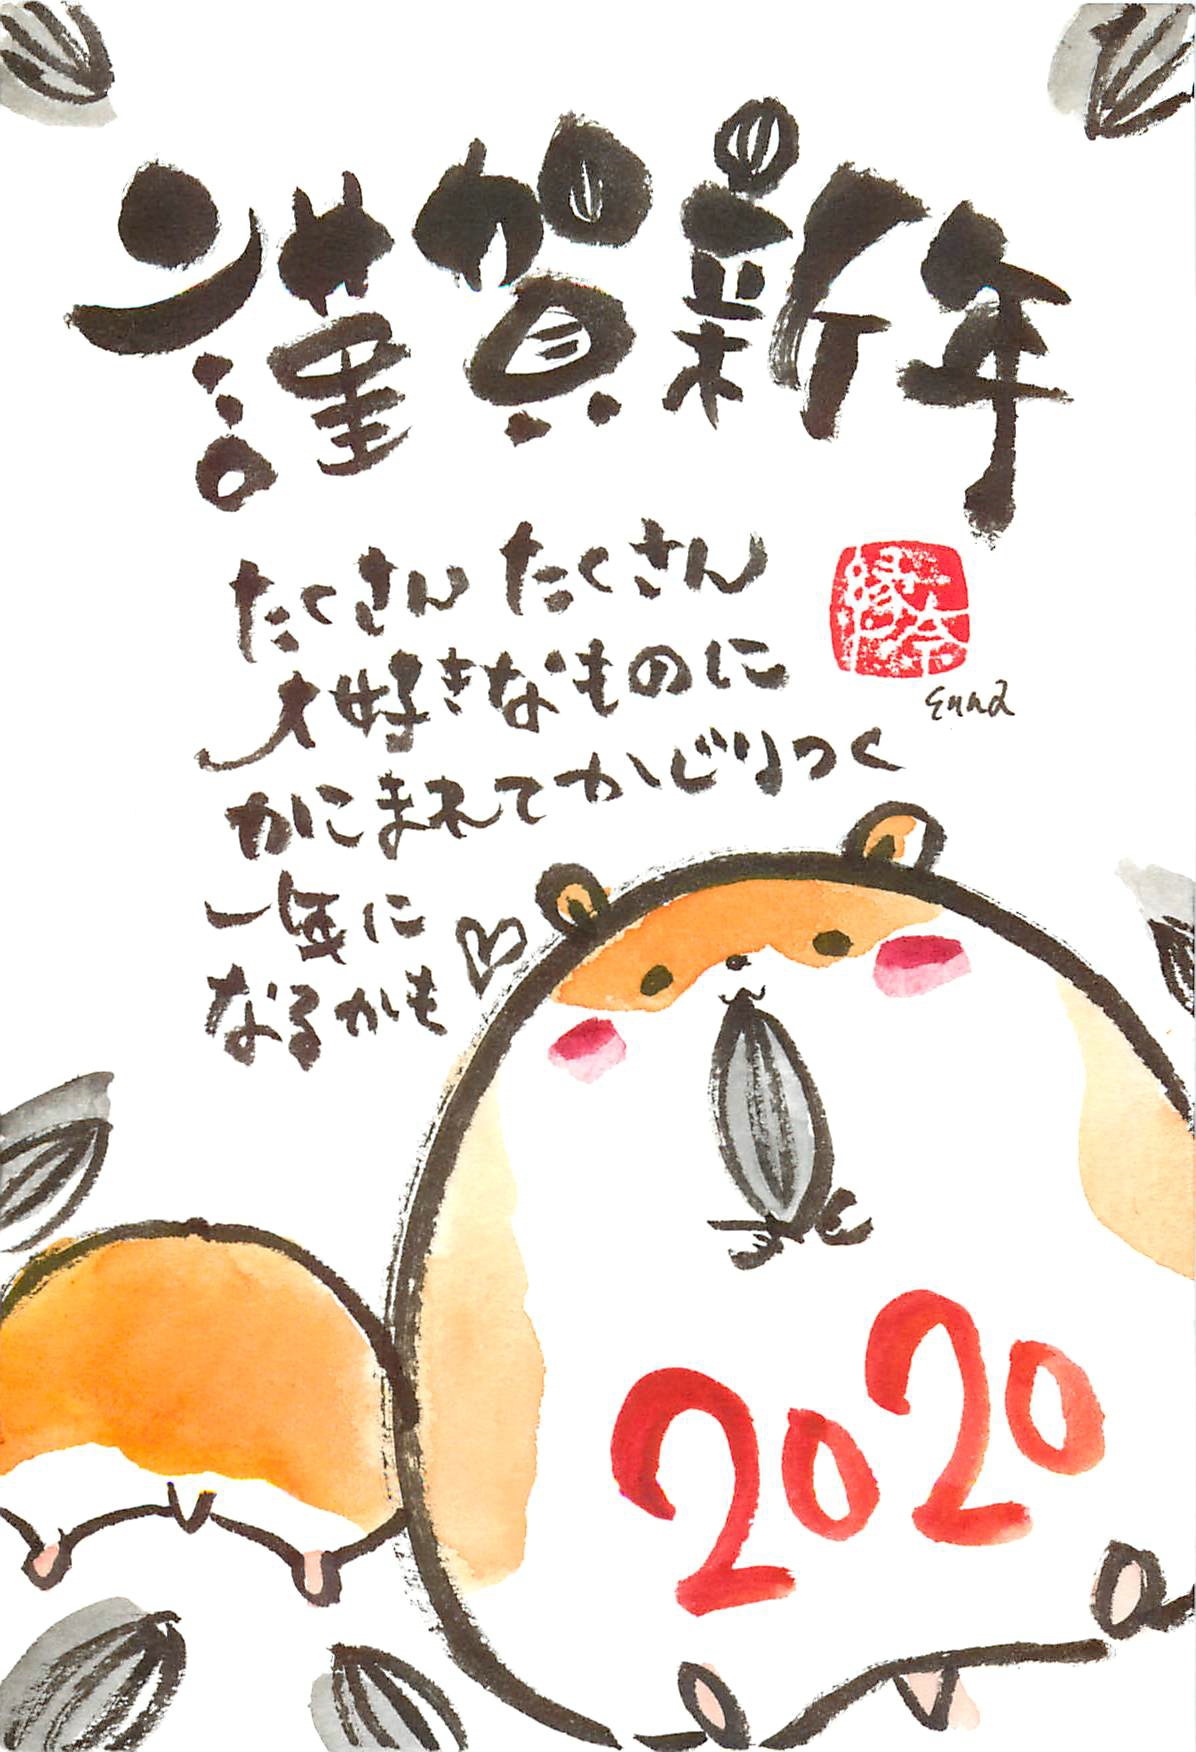 謹賀新年
たくさん たくさん
大好きなものに
かこまれてかじりつく
一年に
なるかも
縁奈
Enna
2020